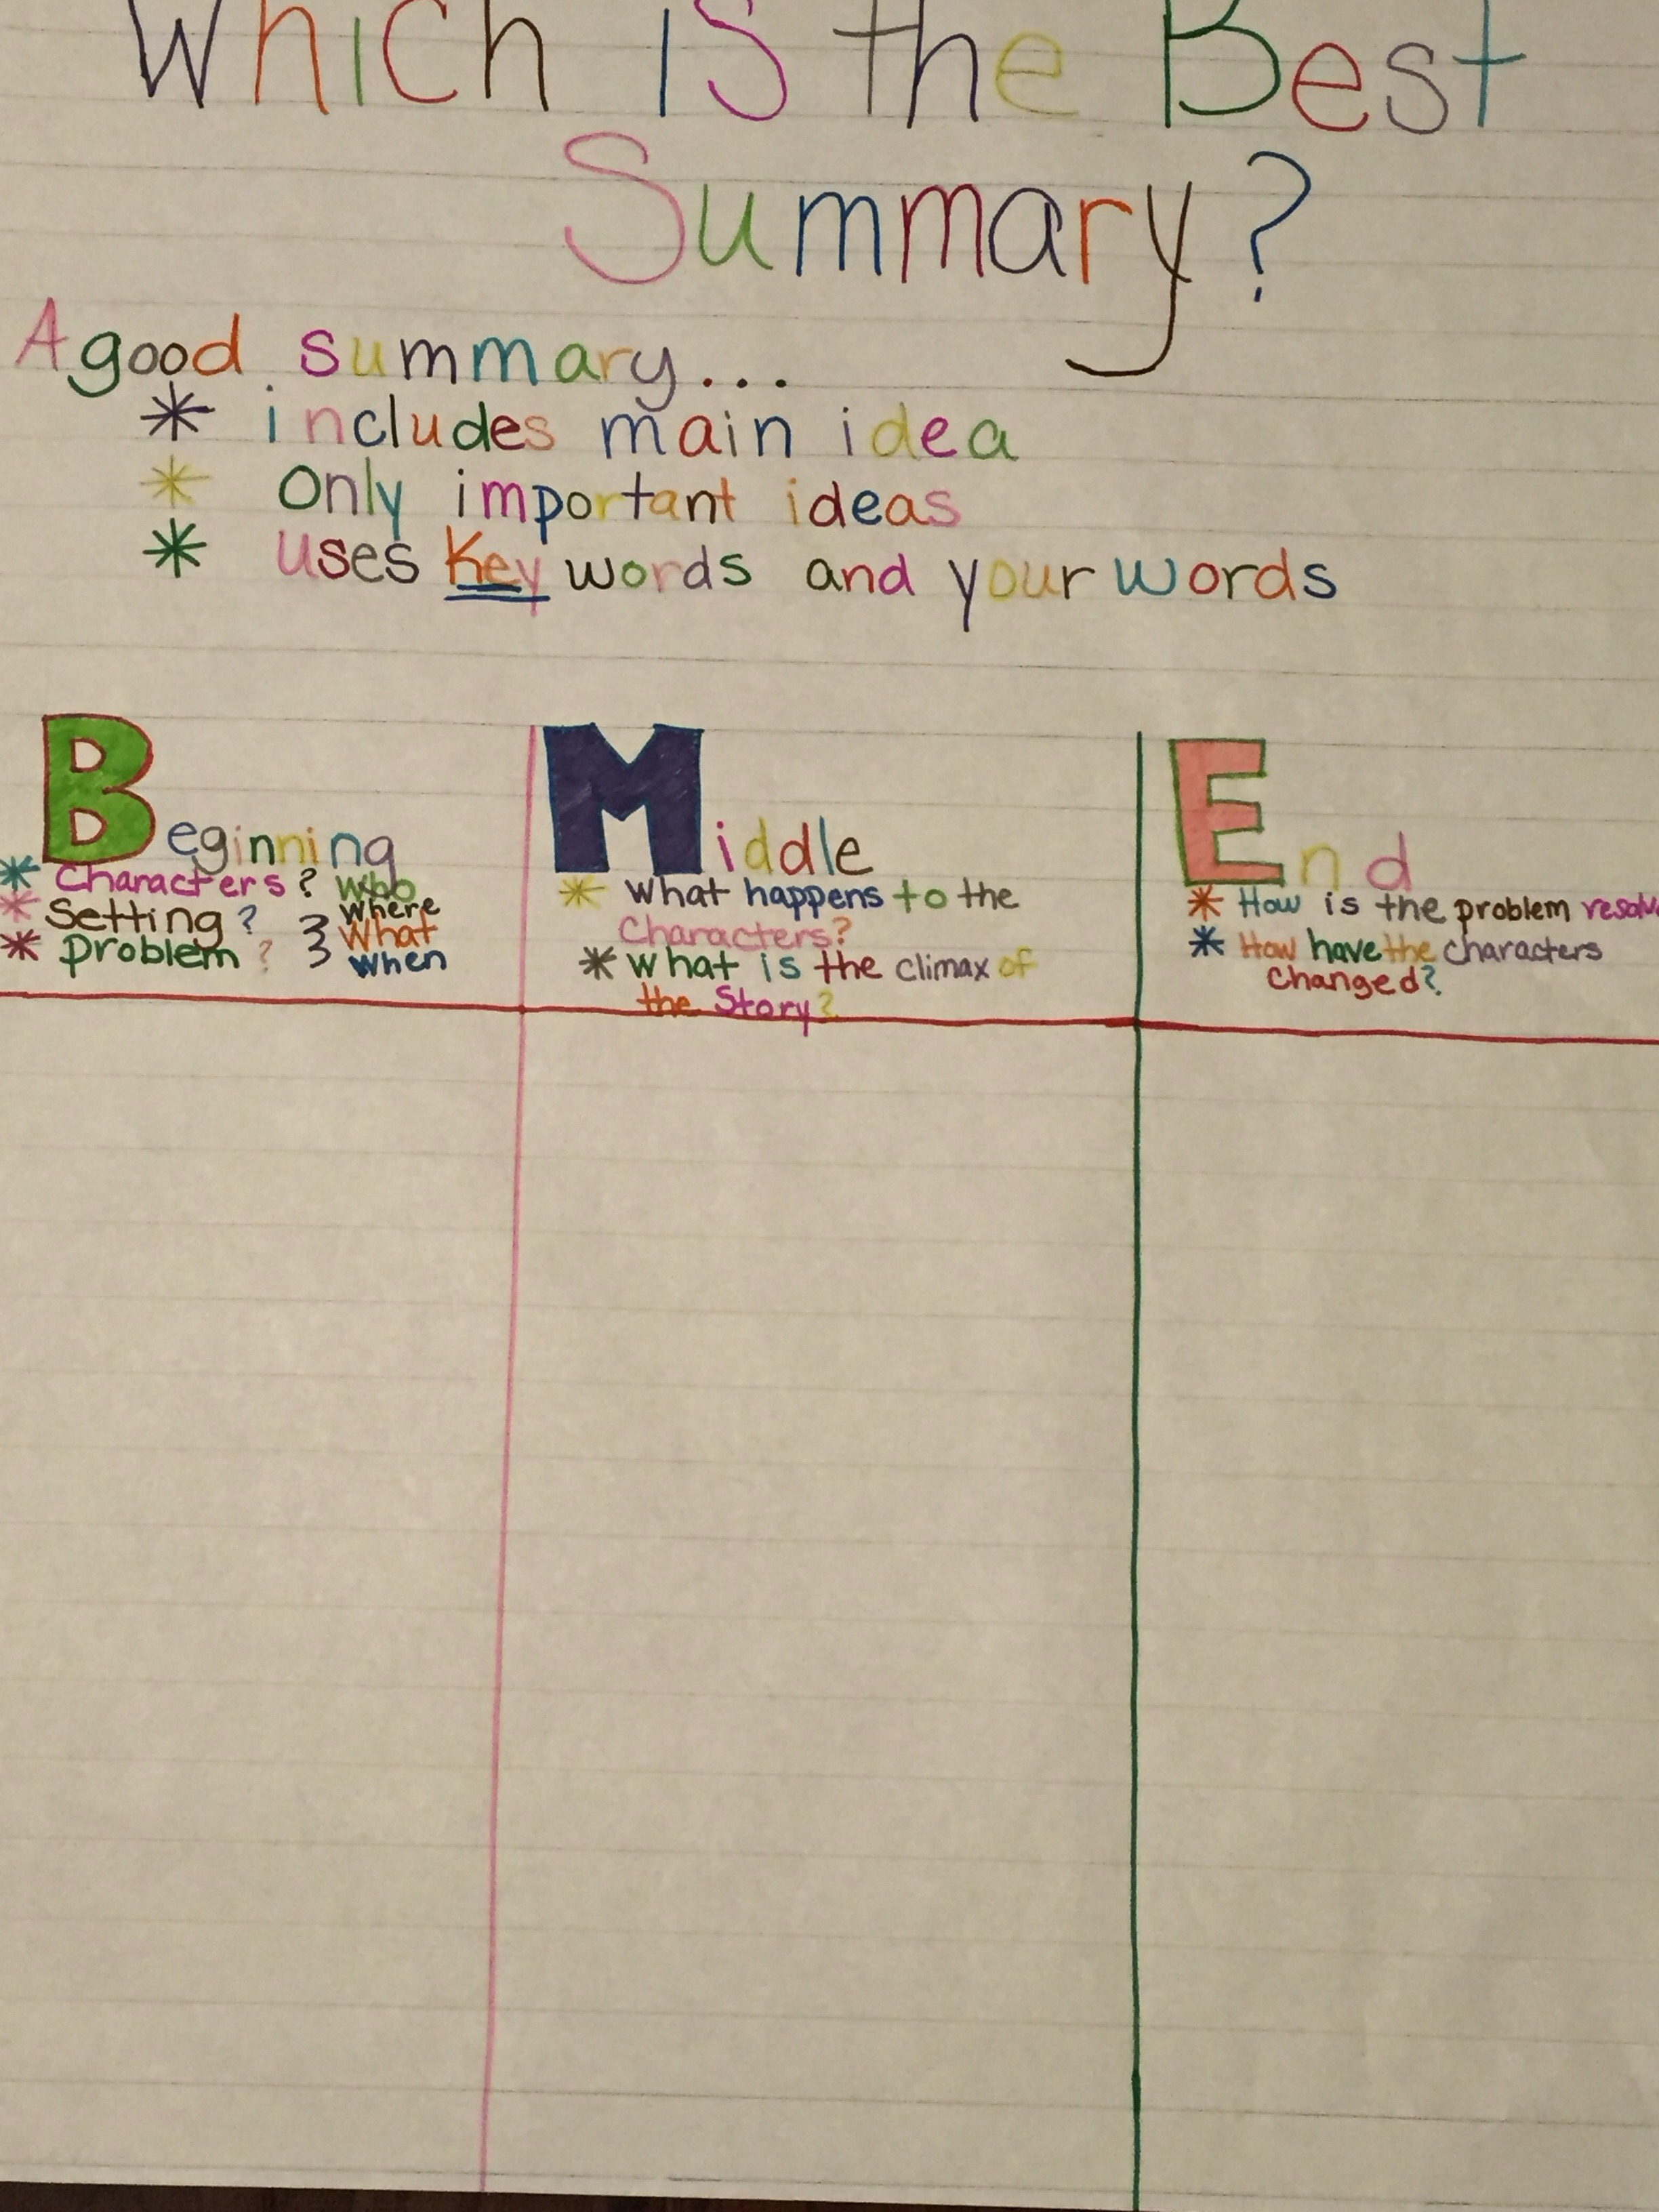 Which is the Best
Summary?
A good summary...
* includes main idea
* Only important ideas
* uses Key words and your words
Beginning
* Characters? Who
* Setting? Where
* Problem? What
When
Middle
* What happens to the
Characters?
* What is the climax of
the Story?
End
* How is the problem
* How have the characters
Changed?